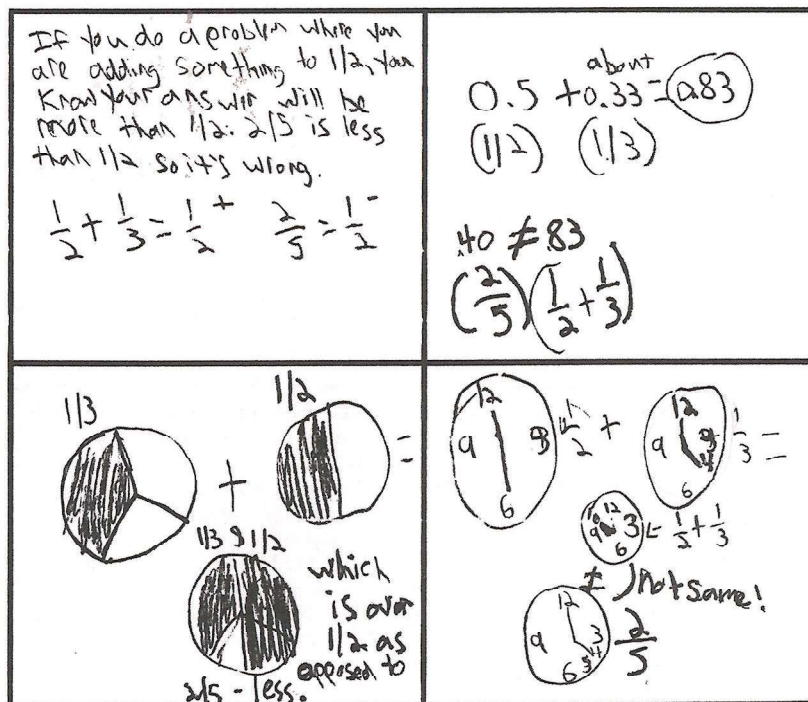 If you do a problem where you
are adding something to 1/2, you
know your answer will be
more than 1/2. 2/5 is less
than 1/2 so it's wrong.
1/2 + 1/3 = 1/2 + 2/5 = 1/2 -
about
0.5 + 0.33 = 0.83
(1/2) (1/3)
.40 ≠ .83
(2/5) (1/2 + 1/3)
1/3 1/2
+ =
1/3 & 1/2
which
is over
1/2 as
opposed to
2/5 - less.
12 9 6 1/2 + 12 9 4 6 1/3 =
10 12 9 3 6 = 1/2 + 1/3
≠ not same!
12 9 3 4 5 6 2/5